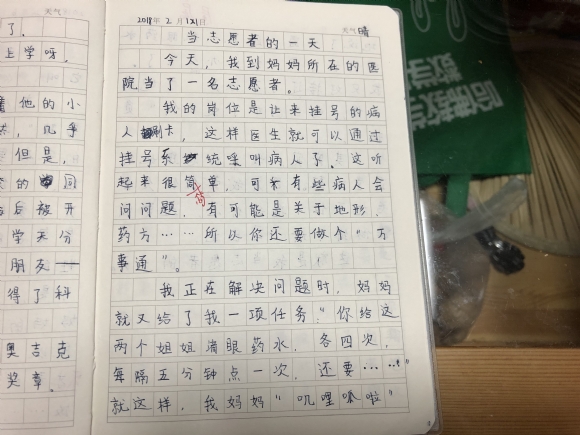 了.
上学呀.
他的小
几乎
但是,
后被开
学天分
朋友——
得了科
奥吉克
奖章.
2018年2月12日
天气 晴
当志愿者的一天
今天, 我到妈妈所在的医
院当了一名志愿者。
我的岗位是让来挂号的病
人刷卡, 这样医生就可以通过
挂号系统呼叫病人了. 这听
起来很简单, 可有些病人会
简
问问题. 有可能是关于地形.
药方……所以你还要做个"万
事通"。
我正在解决问题时, 妈妈
就又给了我一项任务:"你给这
两个姐姐滴眼药水. 各四次,
每隔五分钟点一次, 还要……"
就这样, 我妈妈"叽哩呱啦"
哈佛教学
数学